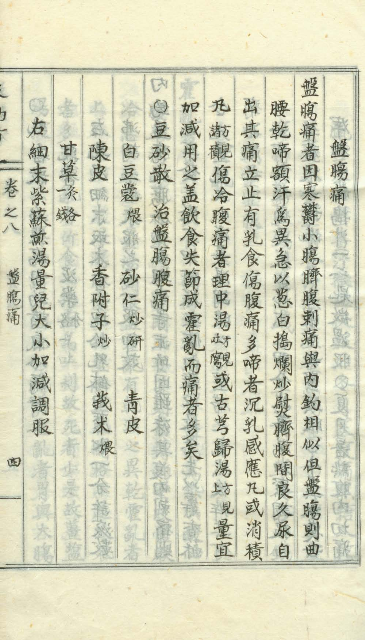 盤腸痛
盤腸痛者因寒鬱小腸臍腹刺痛與內釣相似但盤腸則曲
腰乾啼額汗為異急以葱白搗爛炒熨臍腹間良久尿自
出其痛立止有乳食傷腹痛多啼者沉乳感應丸或消積
丸方見諸觀傷冷腹痛者理中湯方見或古芎歸湯方見上量宜
加減用之盖飲食失節成霍亂而痛者多矣
○豆砂散 治盤腸腹痛
白豆蔲煨 砂仁炒研 青皮
陳皮 香附子炒 莪朮煨
甘草炙各一錢
右細末紫蘇煎湯量兒大小加減調服
卷之八 盤腸痛 四